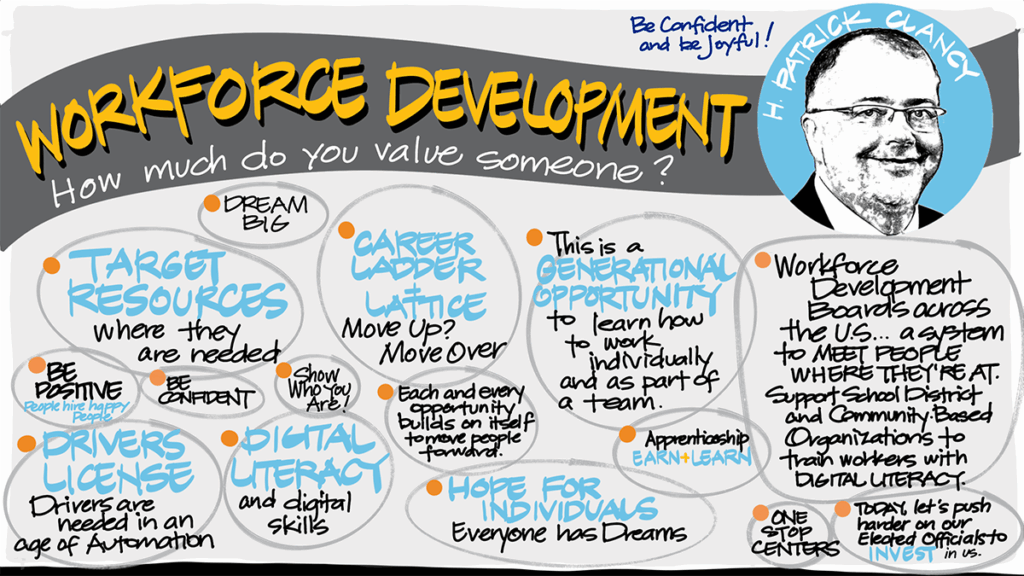 Be Confident
and be Joyful!
H. PATRICK CLANCY
WORKFORCE DEVELOPMENT
How much do you value someone?
DREAM
BIG
TARGET
RESOURCES
where they
are needed
CAREER
LADDER
+
LATTICE
Move Up?
Move Over
This is a
GENERATIONAL
OPPORTUNITY
to learn how
to work
individually
and as part of
a team.
Workforce
Development
Boards across
the U.S... a system
to MEET PEOPLE
WHERE THEY'RE AT.
Support School District
and Community Based
Organizations to
train workers with
DIGITAL LITERACY.
BE
POSITIVE
People hire happy
People
BE
CONFIDENT
Show
Who You
Are!
Each and every
opportunity
builds on itself
to move people
forward.
Apprenticeship
EARN+LEARN
DRIVERS
LICENSE
Drivers are
needed in an
age of Automation
DIGITAL
LITERACY
and digital
skills
HOPE FOR
INDIVIDUALS
Everyone has Dreams
ONE
STOP
CENTERS
TODAY, let's push
harder on our
Elected Officials to
INVEST in us.